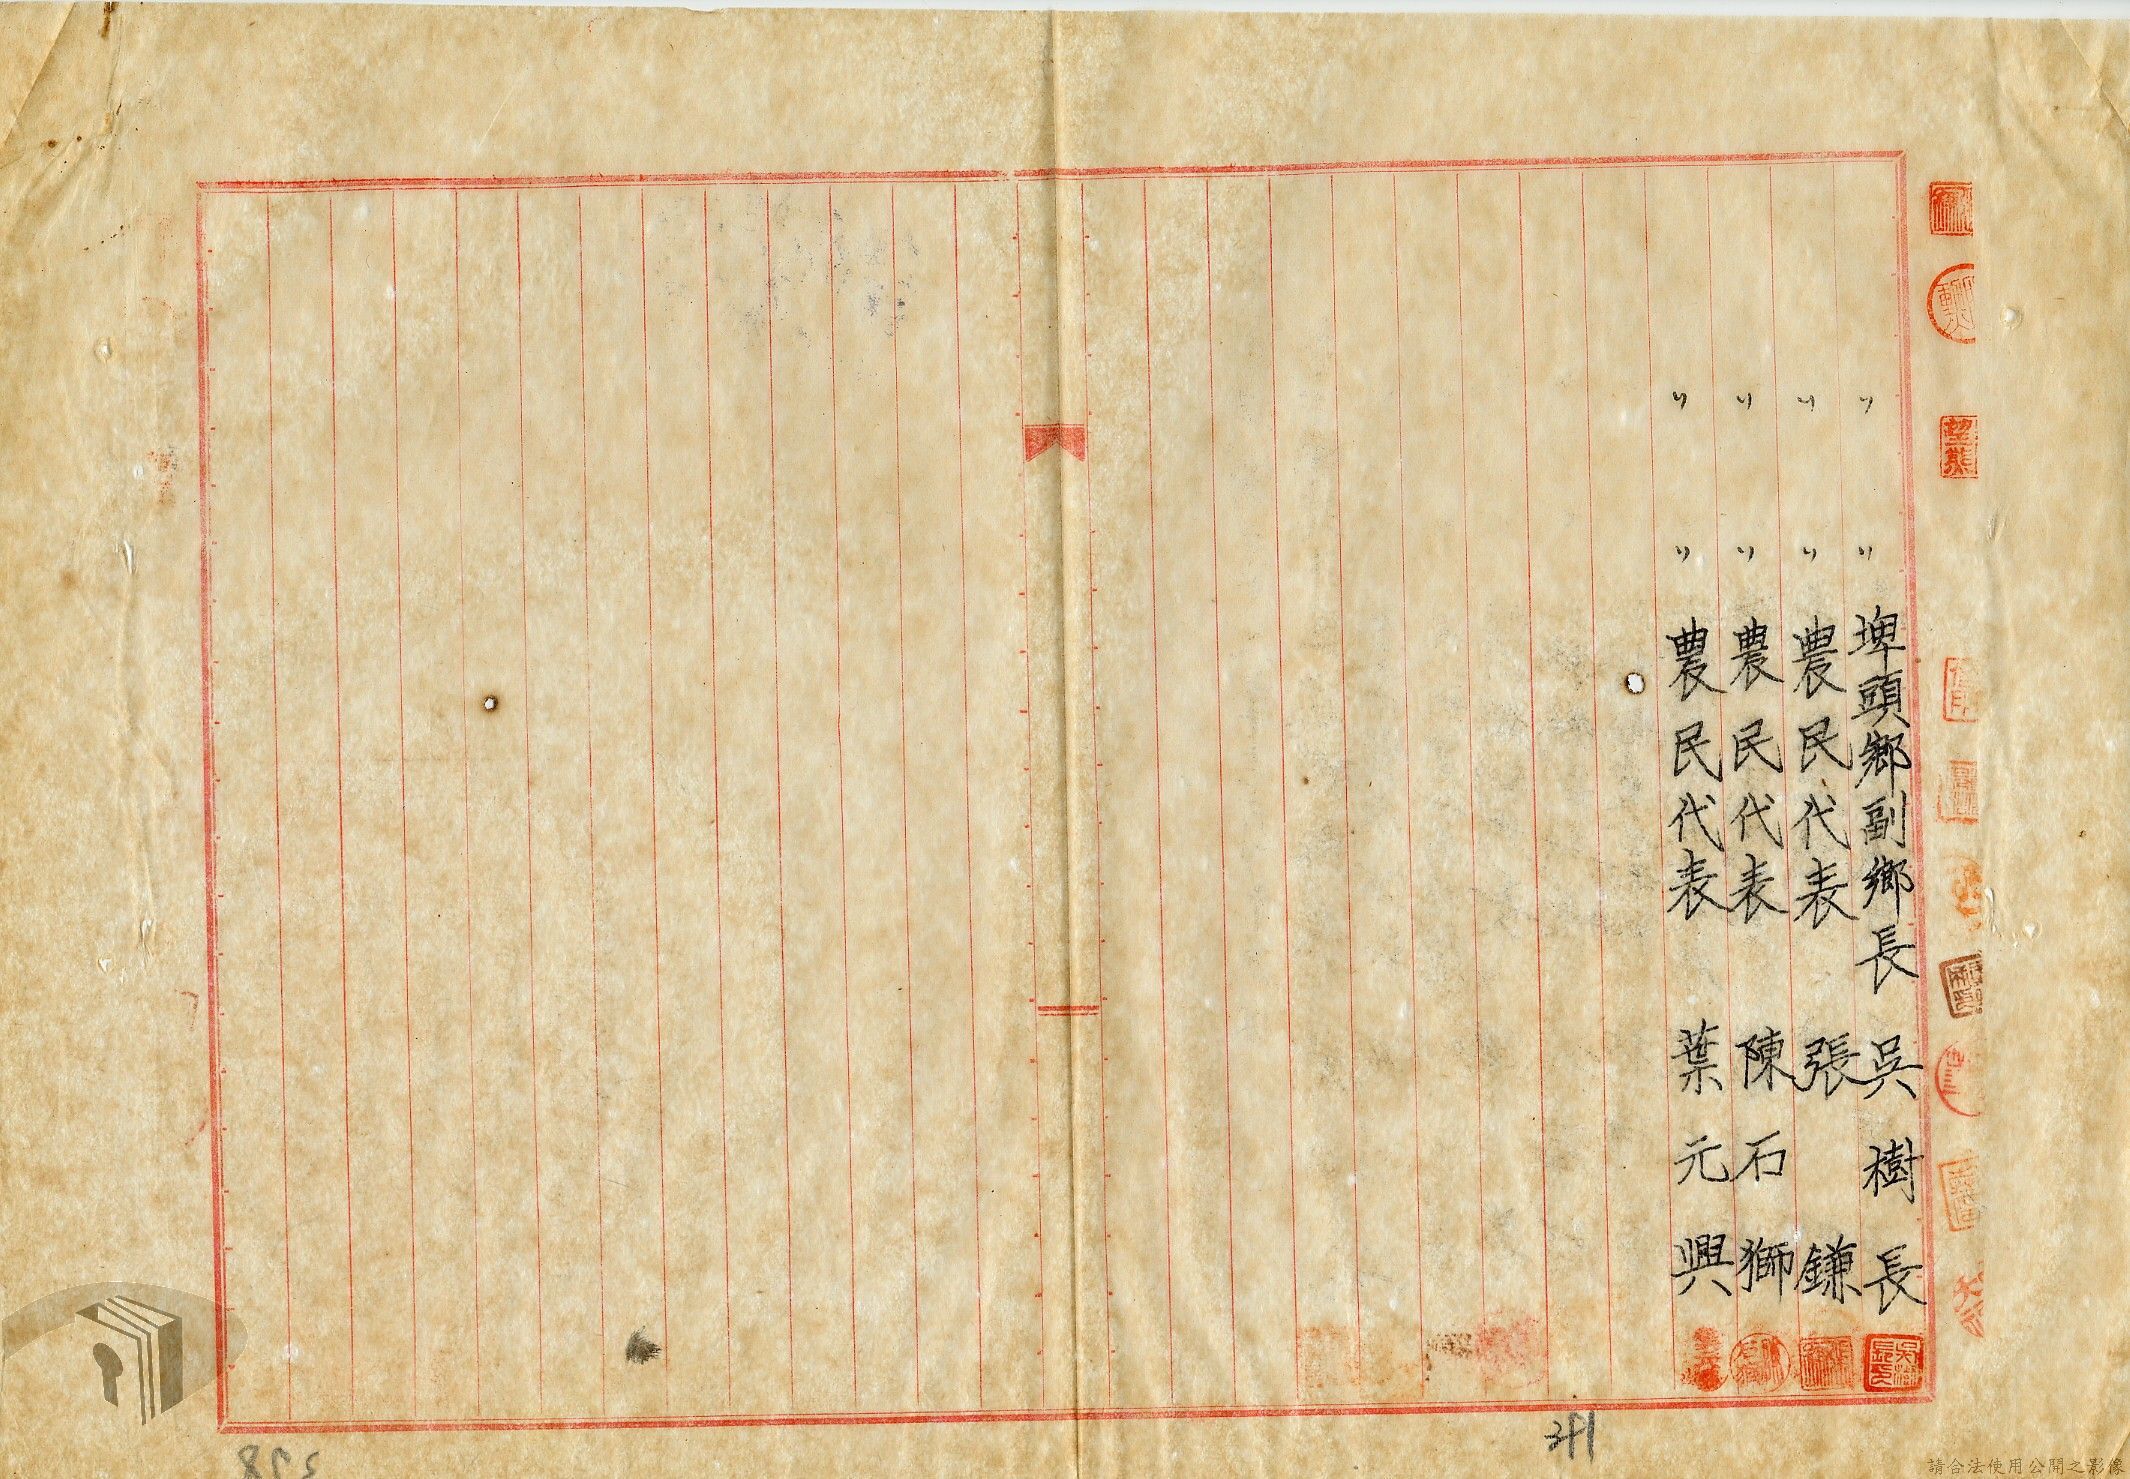 〃 〃 埤頭鄉副鄉長 吳樹長
〃 〃 農民代表 張 鎌
〃 〃 農民代表 陳石獅
〃 〃 農民代表 葉元興
請合法使用公開之影像